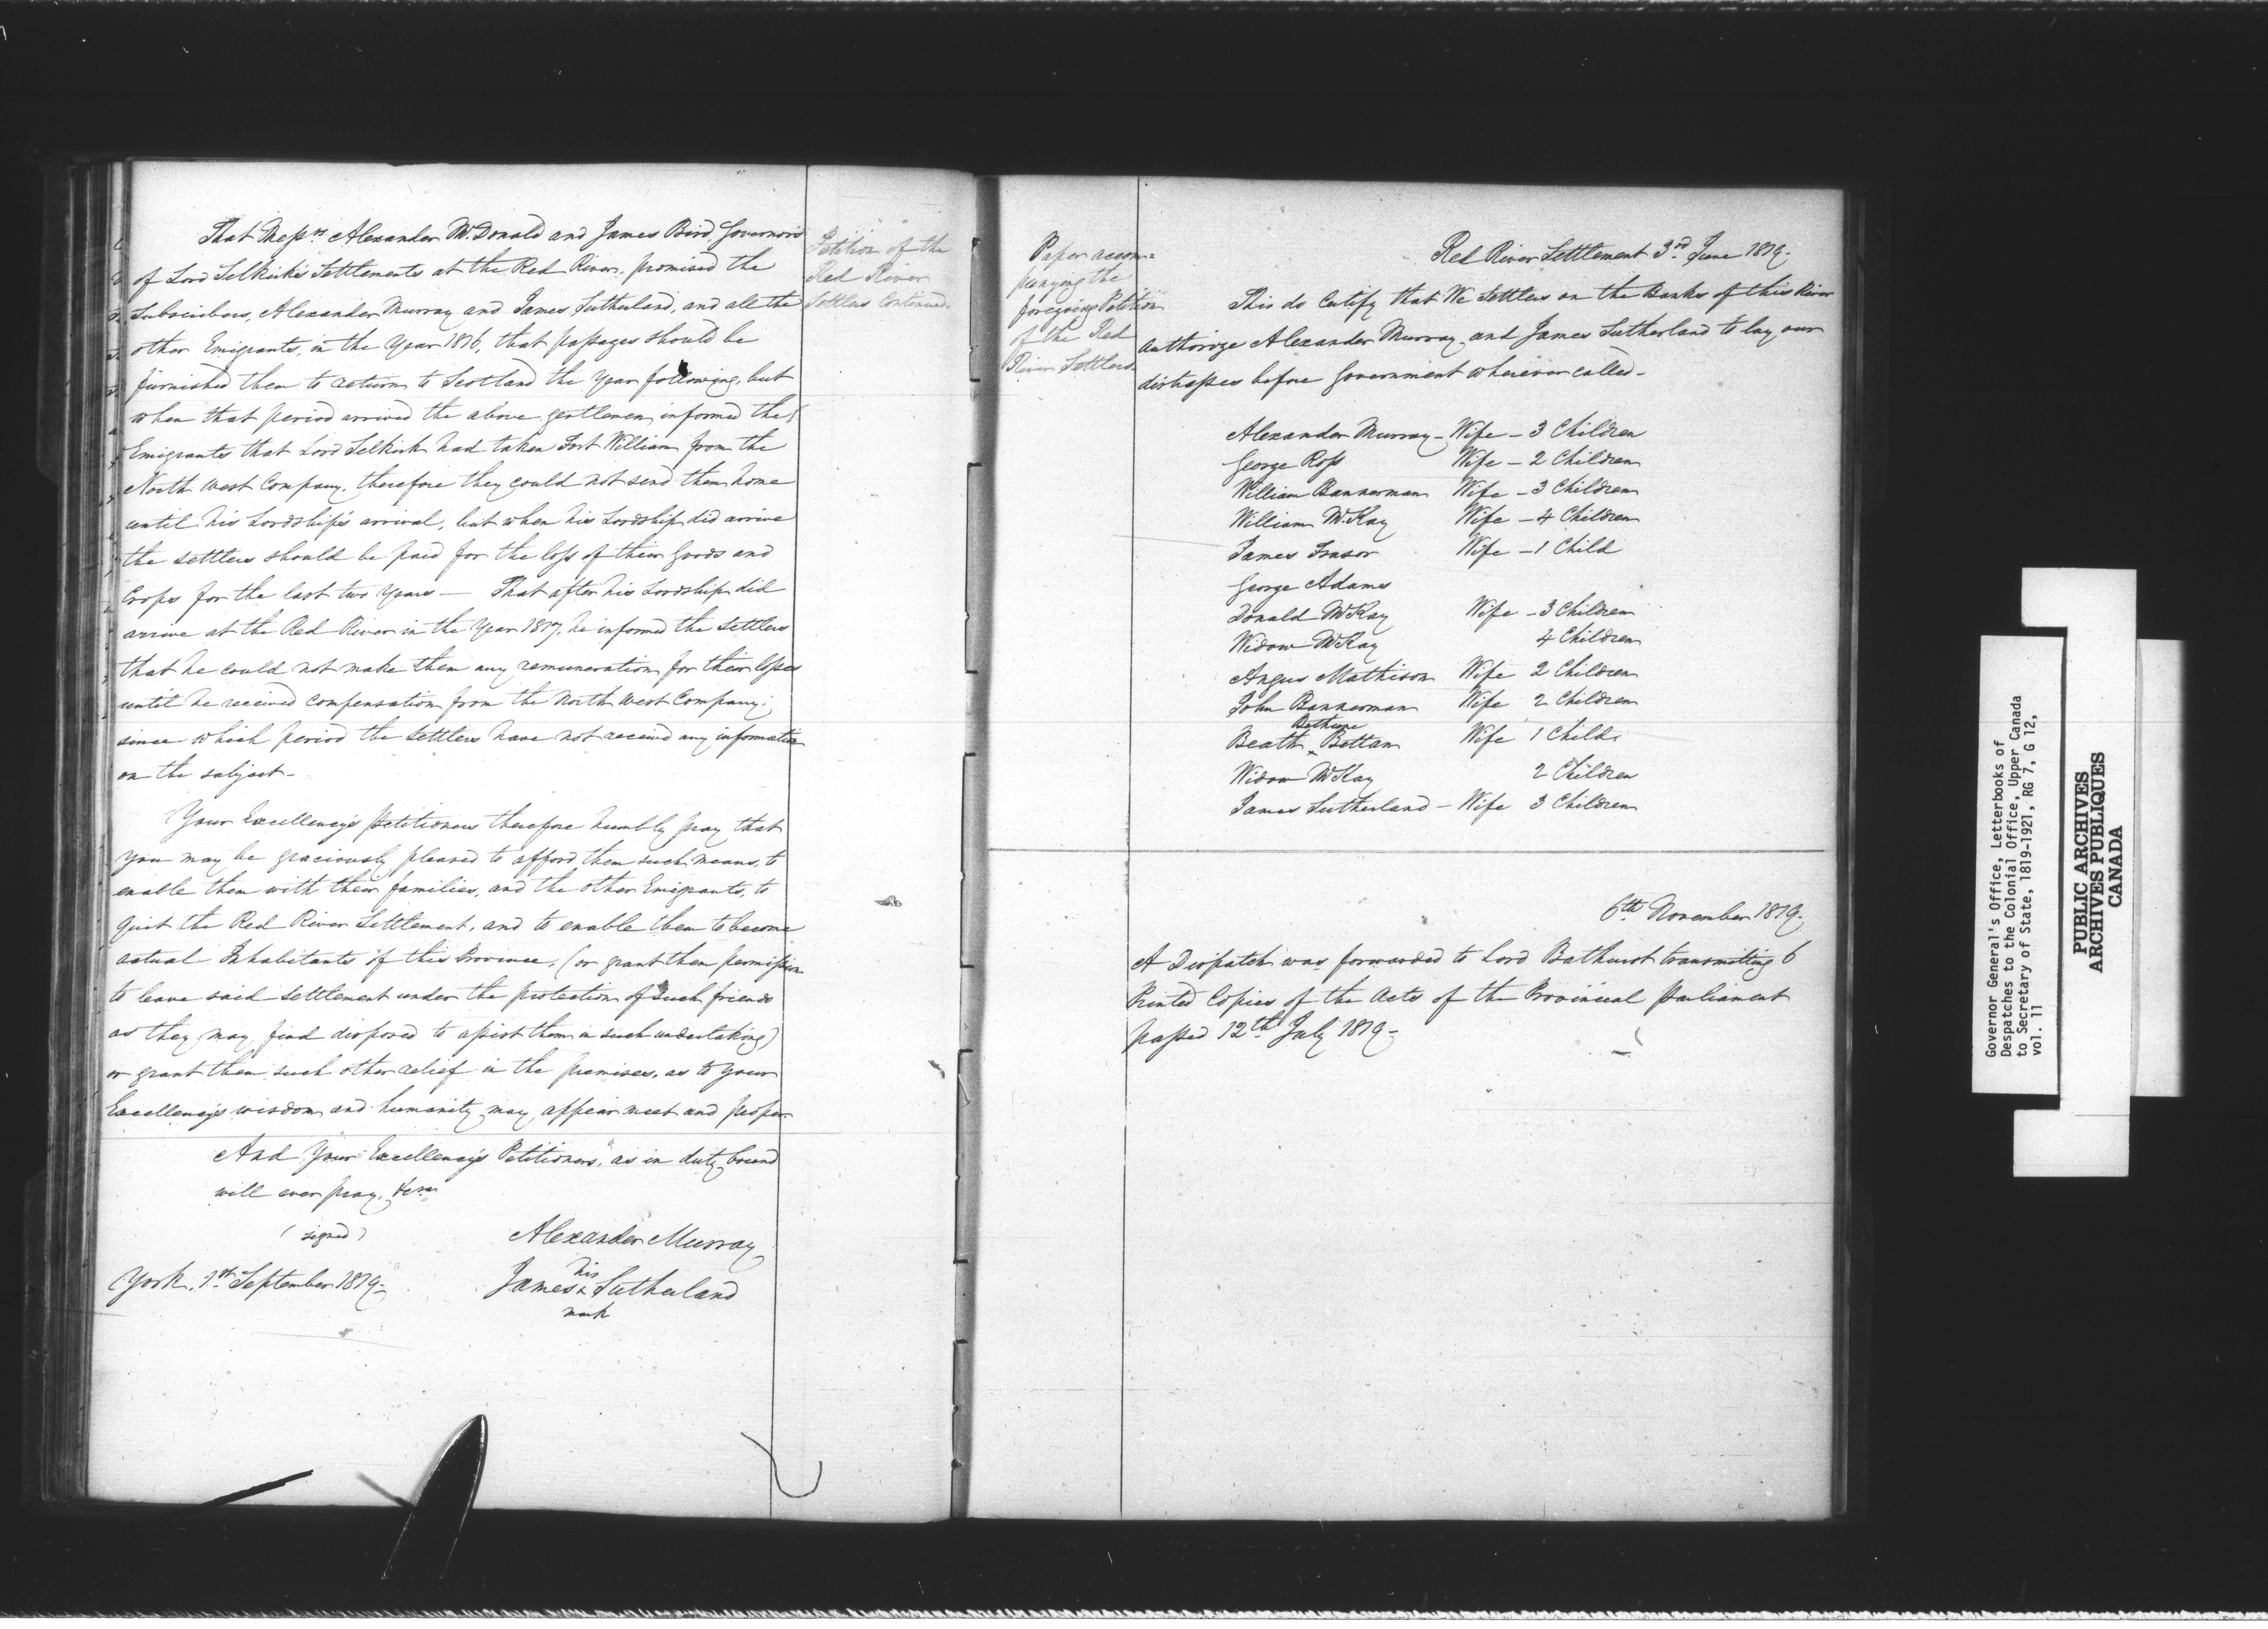 That Messrs Alexander McDonald and James Bird, Governors
of Lord Selkirk's Settlements at the Red River, promised the
Subscribers, Alexander Murray and James Sutherland, and all the
other Emigrants, in the Year 1816, that passages should be
furnished them to return to Scotland the Year following, but
when that period arrived the above gentlemen informed the
Emigrants that Lord Selkirk had taken Fort William from the
North West Company, therefore they could not send them home
until his Lordship's arrival, but when his Lordship did arrive
the settlers should be paid for the loss of their Goods and
Crops for the last two Years — That after his Lordship did
arrive at the Red River in the Year 1817, he informed the Settlers
that he could not make them any remuneration for their losses
until he received compensation from the North West Company;
since which period the Settlers have not received any information
on the subject –
Your Excellency's Petitioners therefore humbly pray that
you may be graciously pleased to afford them such means, to
enable them with their families, and the other Emigrants, to
quit the Red River Settlement, and to enable them to become
actual Inhabitants of this Province, (or grant them permission
to leave said Settlement under the protection of such friends
as they may find disposed to assist them in such undertaking)
or grant them such other relief in the premises, as to your
Excellency's wisdom and humanity may appear meet and proper
And Your Excellency's Petitioners, as in duty bound
will ever pray, &ca
(signed)
Alexander Murray
his
York, 1st September 1819 –
James x Sutherland
mark
Petition of the
Red River
Settlers Continued
Paper accom=
panying the
foregoing Petition
of the Red
River Settlers
Red River Settlement 3rd June 1819 –
This do Certify that We Settlers on the Banks of this River
authorize Alexander Murray and James Sutherland to lay our
distresses before Government wherever called –
Alexander Murray – Wife – 3 Children
George Ross Wife – 2 Children
William Bannerman Wife – 3 Children
William McKay Wife – 4 Children
James Frasor Wife – 1 Child
George Adams
Donald McKay Wife – 3 Children
Widow McKay 4 Children
Angus Mathison Wife 2 Children
John Bannerman Wife 2 Children
Bethune
Beath Bettan Wife 1 Child
Widow McKay 2 Children
James Sutherland – Wife 3 Children
6th November 1819 –
A Dispatch was forwarded to Lord Bathurst transmitting 6
Printed Copies of the Acts of the Provincial Parliament
passed 12th July 1819 –
Governor General's Office, Letterbooks of
Despatches to the Colonial Office, Upper Canada
to Secretary of State, 1819-1921, RG 7, G 12,
vol. 11
PUBLIC ARCHIVES
ARCHIVES PUBLIQUES
CANADA